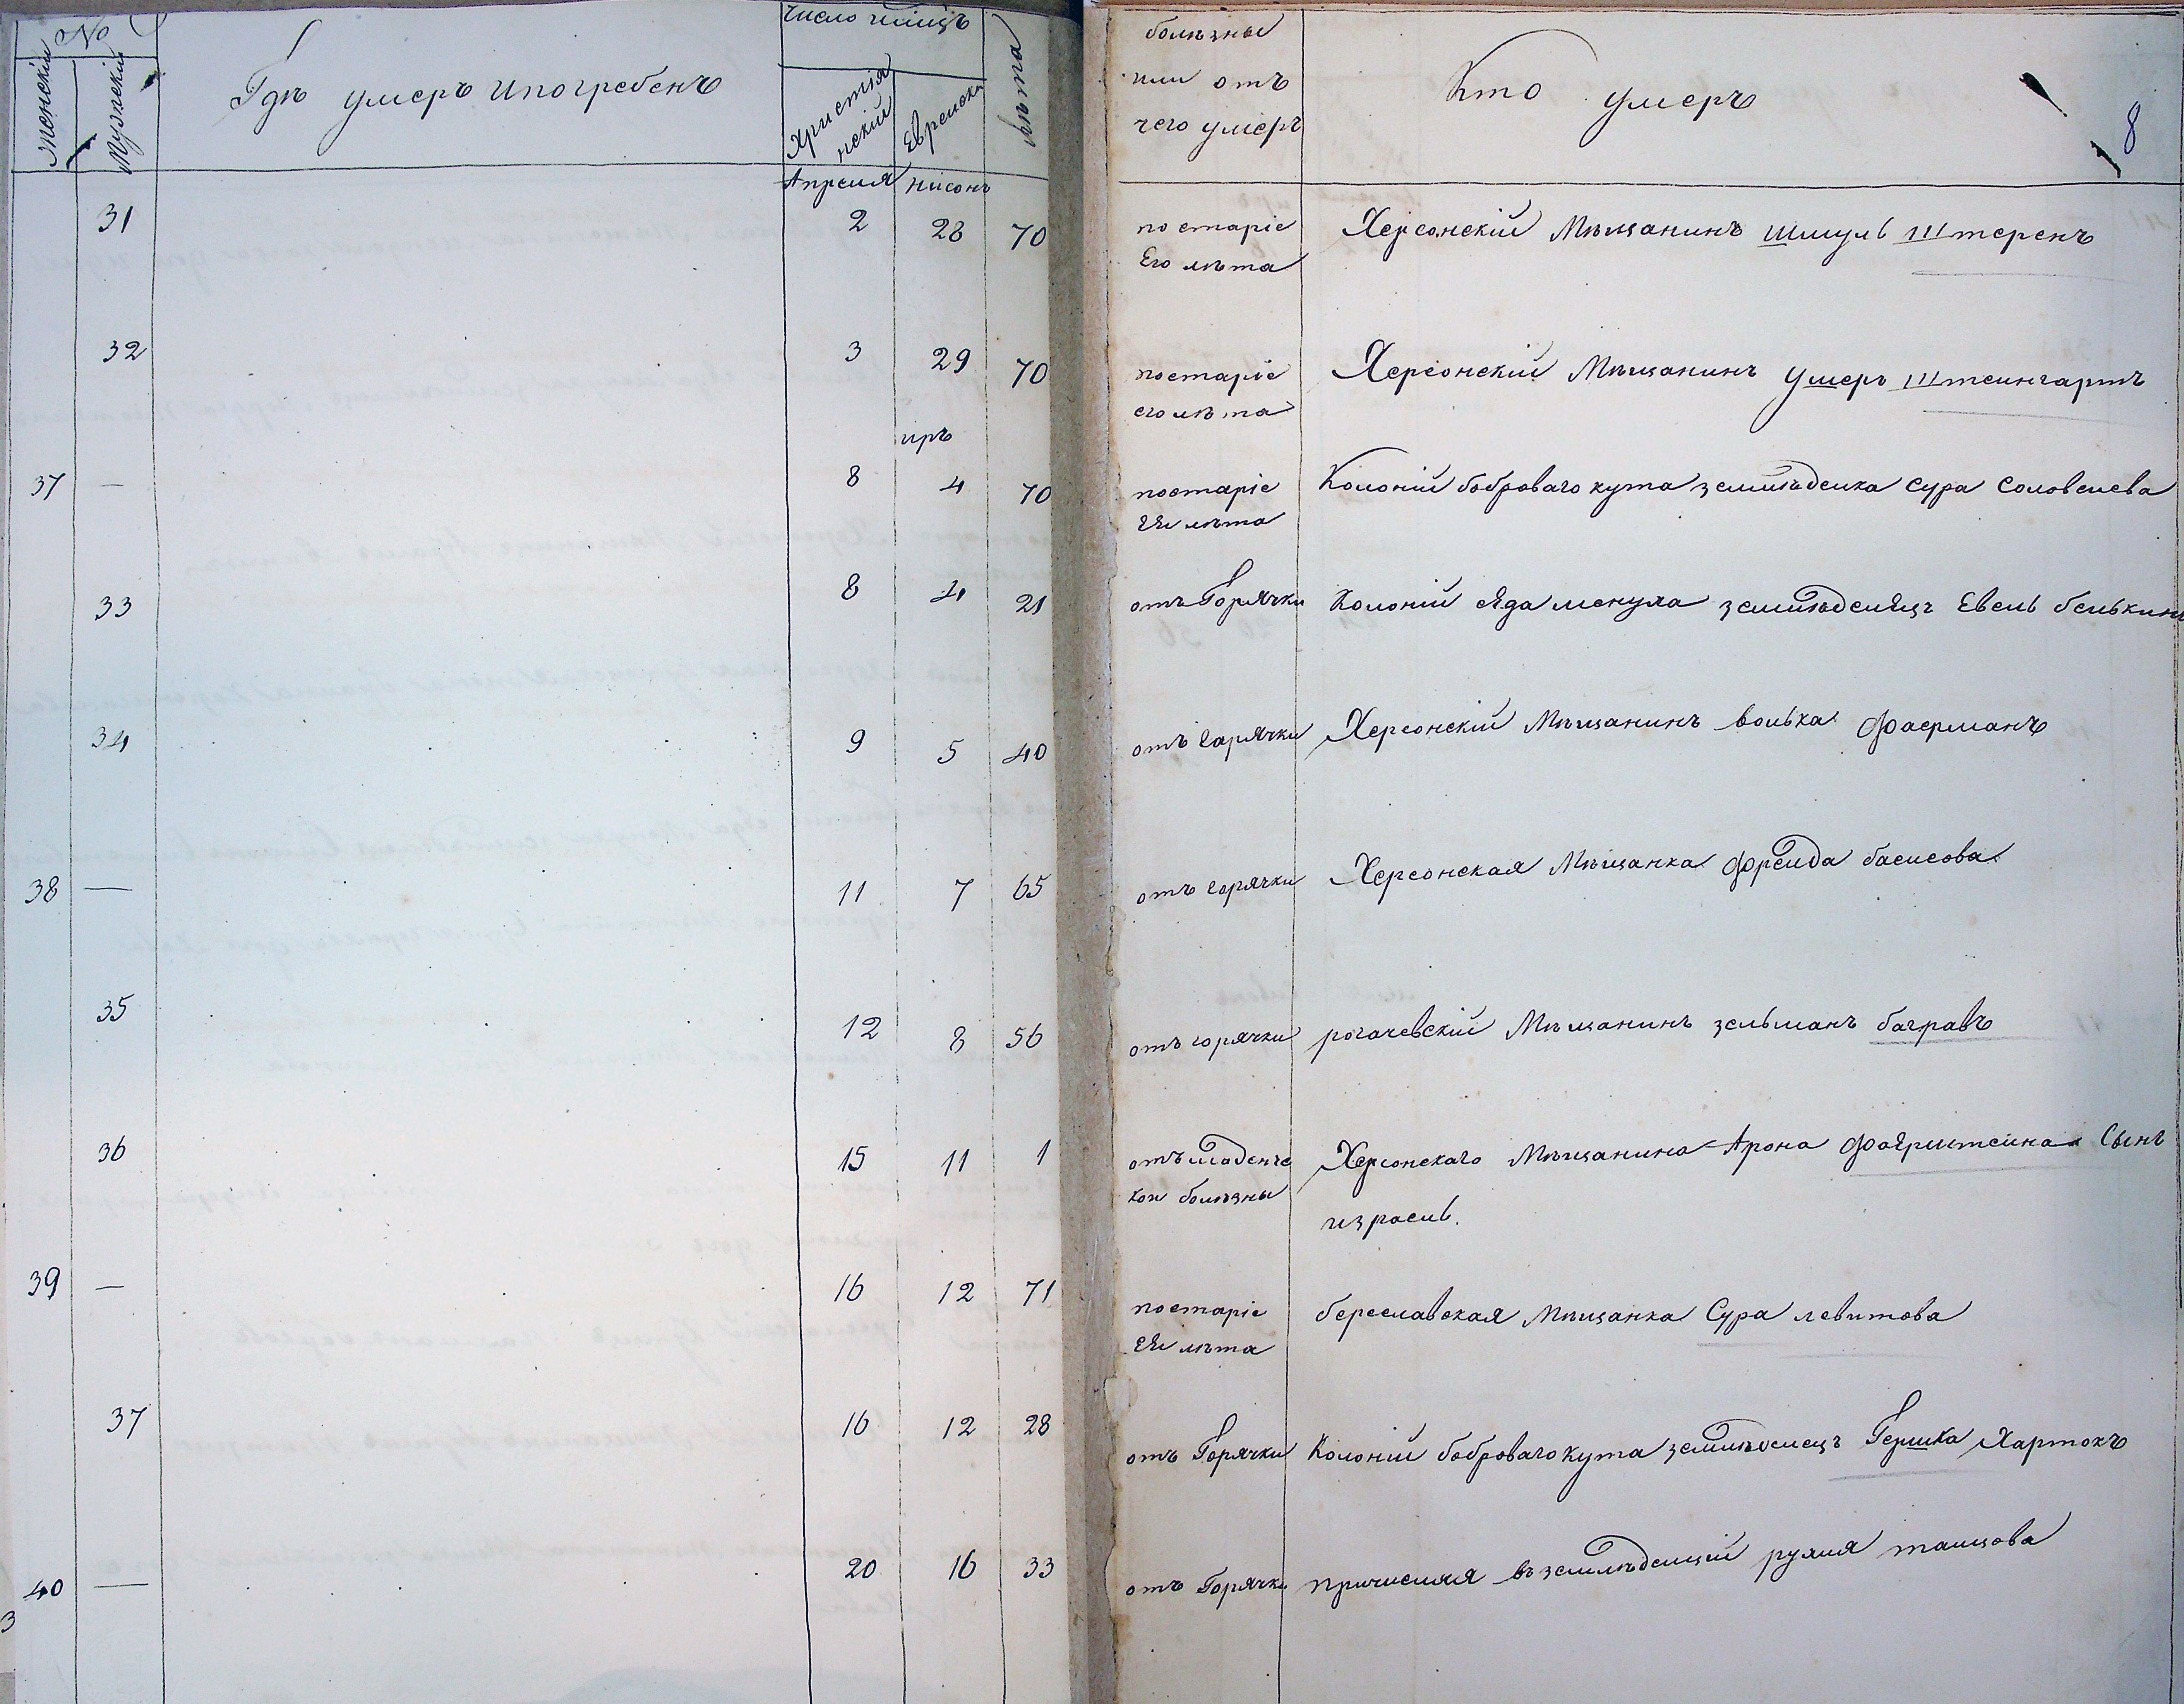 №
Женскій
Мужескій
Гдѣ умеръ и погребенъ
Число и мѣсяцъ
Христіянскій
Еврейскій
лѣта
болѣзны
или отъ
чего умеръ
Кто умеръ
8
Апреля нисонъ
31 2 28 70
по старіе
Его лѣта
Херсонскій Мѣщанинъ Шмуль Штеренъ
32 3 29 70
постаріе
его лѣта
Херсонскій Мѣщанинъ Умеръ Штейнгартъ
иръ
37 — 8 4 70
постаріе
Ея лѣта
Колоній боброваго кута земледѣлка Сура Соловеева
33 8 4 21
отъ Горячки Колоній Еда менуха земледѣлецъ Евель белькинъ
34 9 5 40
отъ Гарячки Херсонскій Мѣщанинъ Волька Фаерманъ
38 — 11 7 65
отъ горячки Херсонская Мѣщанка Фрейда басисова
35 12 8 56
отъ горячки рогачевскій Мѣщанинъ зельманъ багравъ
36 15 11 1
отъ младенче
кои болѣзны
Херсонскаго Мѣщанина Арона Сынъ
израель.
39 — 16 12 71
постаріе
Ея лѣта
береславская Мѣщанка Сура левитова
37 16 12 28
отъ Горячки Колоній боброваго кута земледѣлецъ Гершка Хартокъ
40 — 20 16 33
отъ Горячки
3